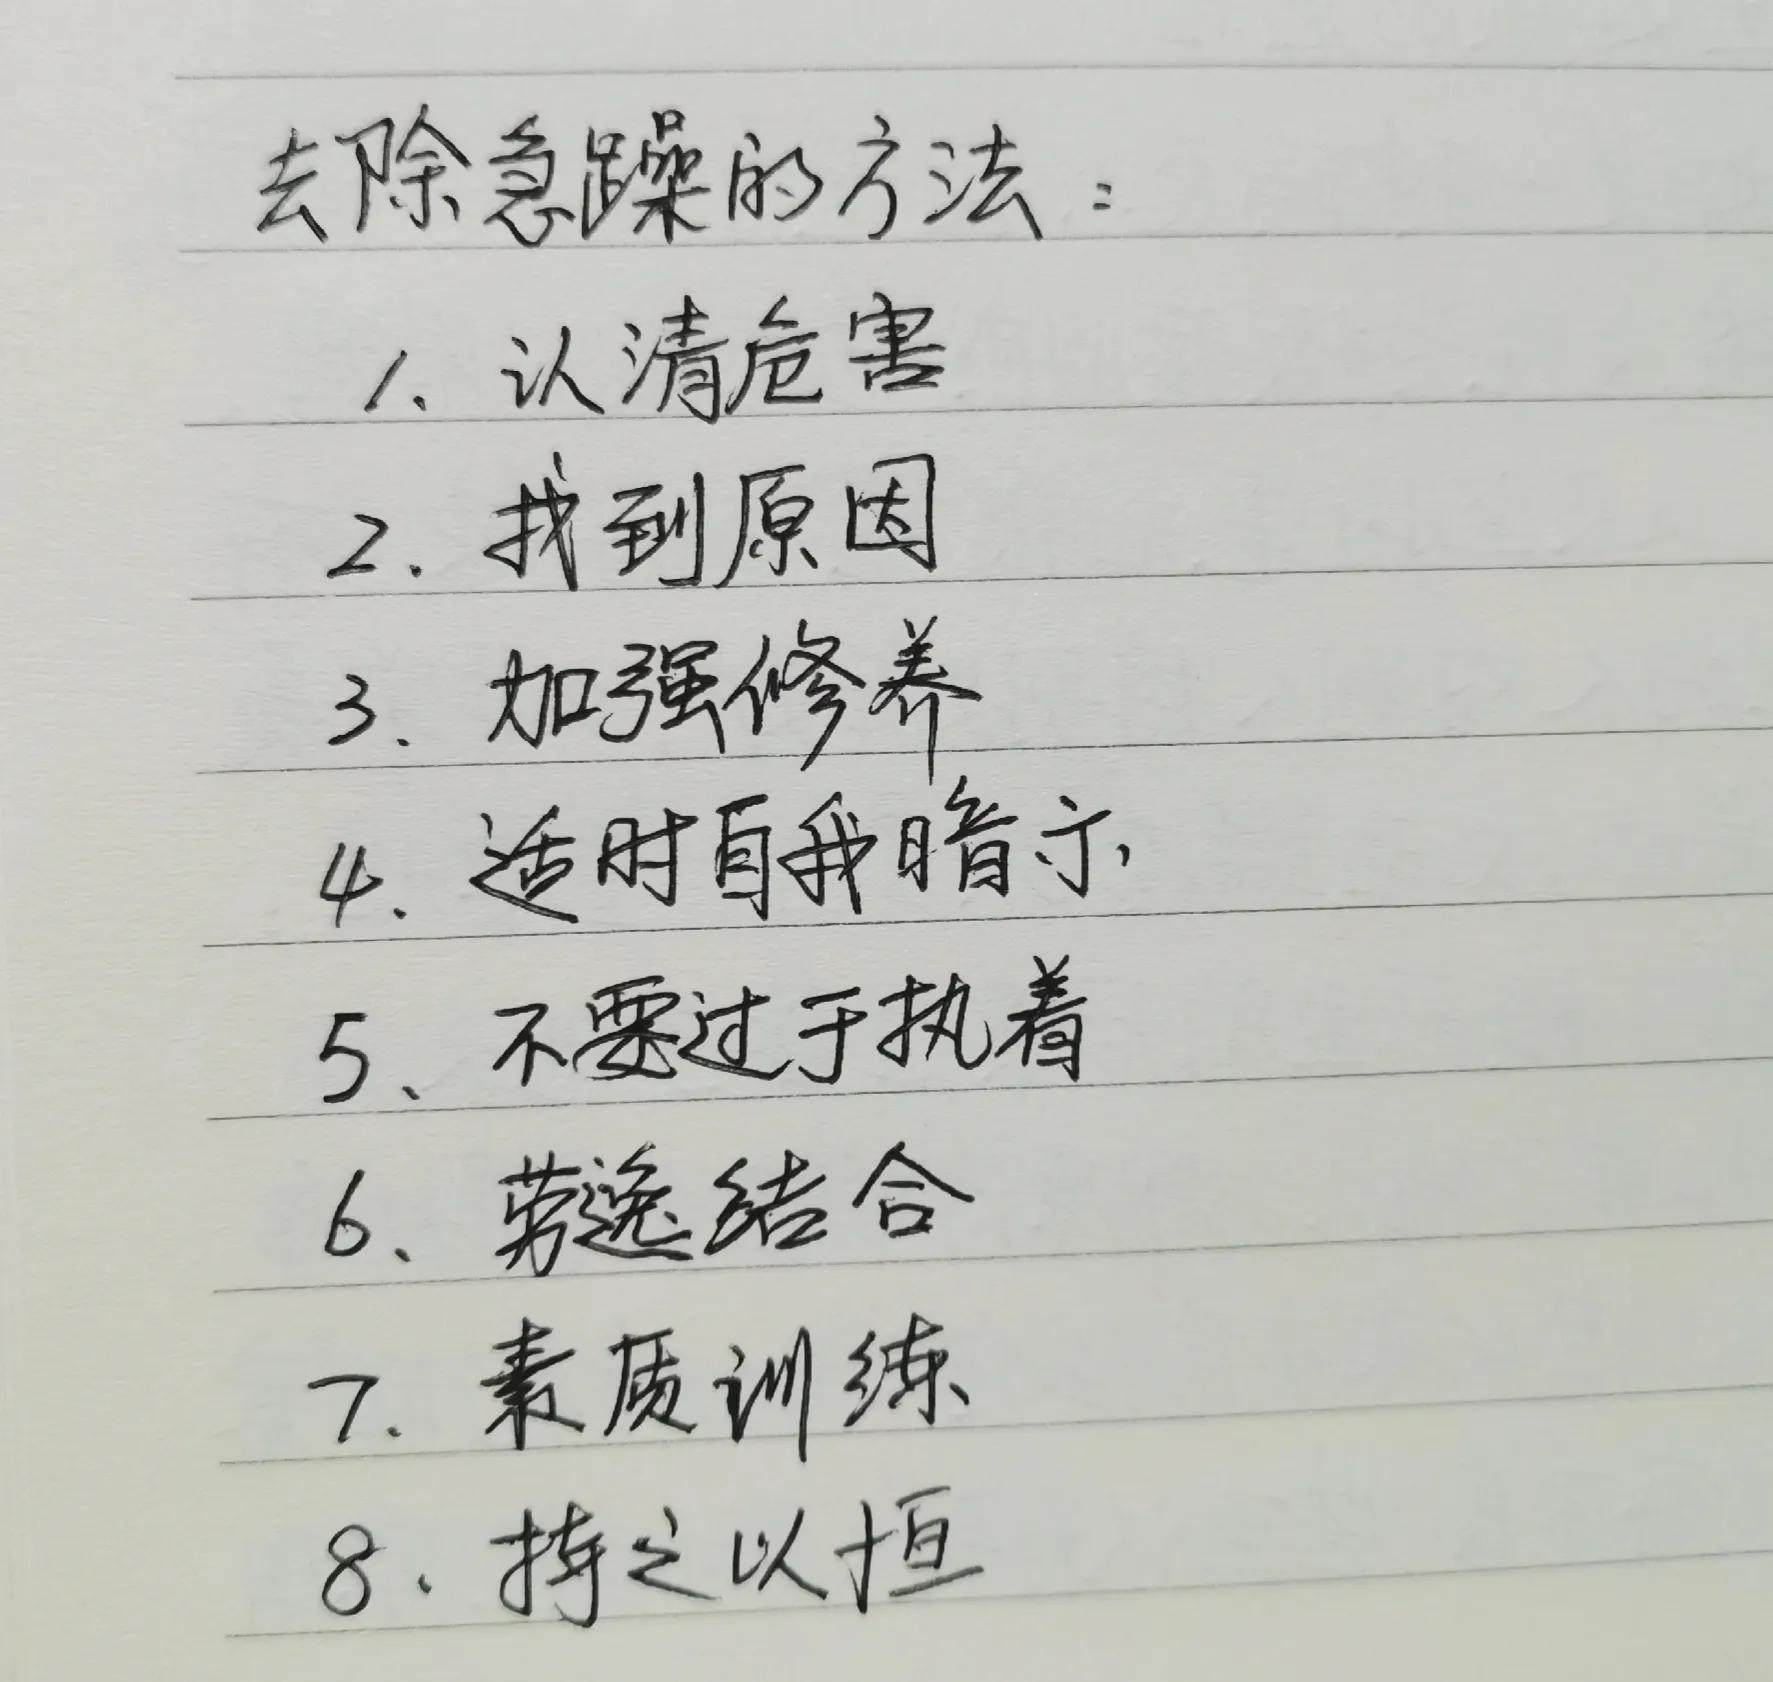 去除急躁的方法：
1、认清危害
2、找到原因
3、加强修养
4、适时自我暗示
5、不要过于执着
6、劳逸结合
7、素质训练
8、持之以恒